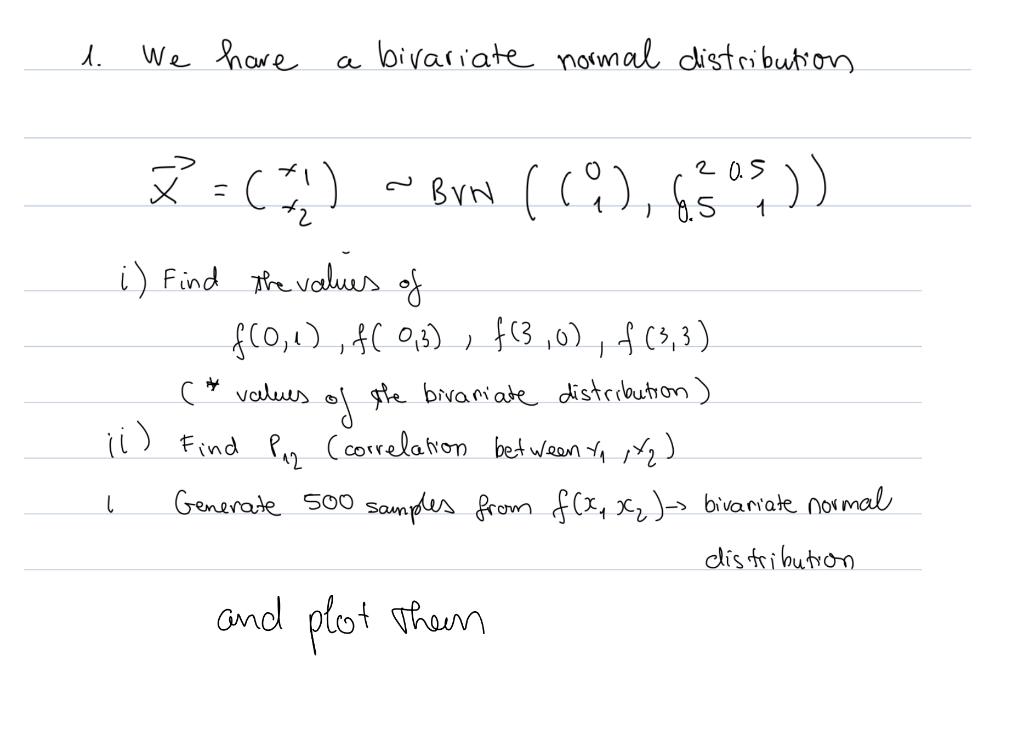 1. We have a bivariate normal distribution
X = ( x1 x2 ) ~ BVN ( ( 0 1 ), ( 2 0.5 0.5 1 ) )
i) Find the values of
f(0,1), f(0,3), f(3,0), f(3,3)
(* values of the bivariate distribution)
ii) Find P12 (correlation between x1, x2)
Generate 500 samples from f(x1 x2) -> bivariate normal
distribution
and plot them